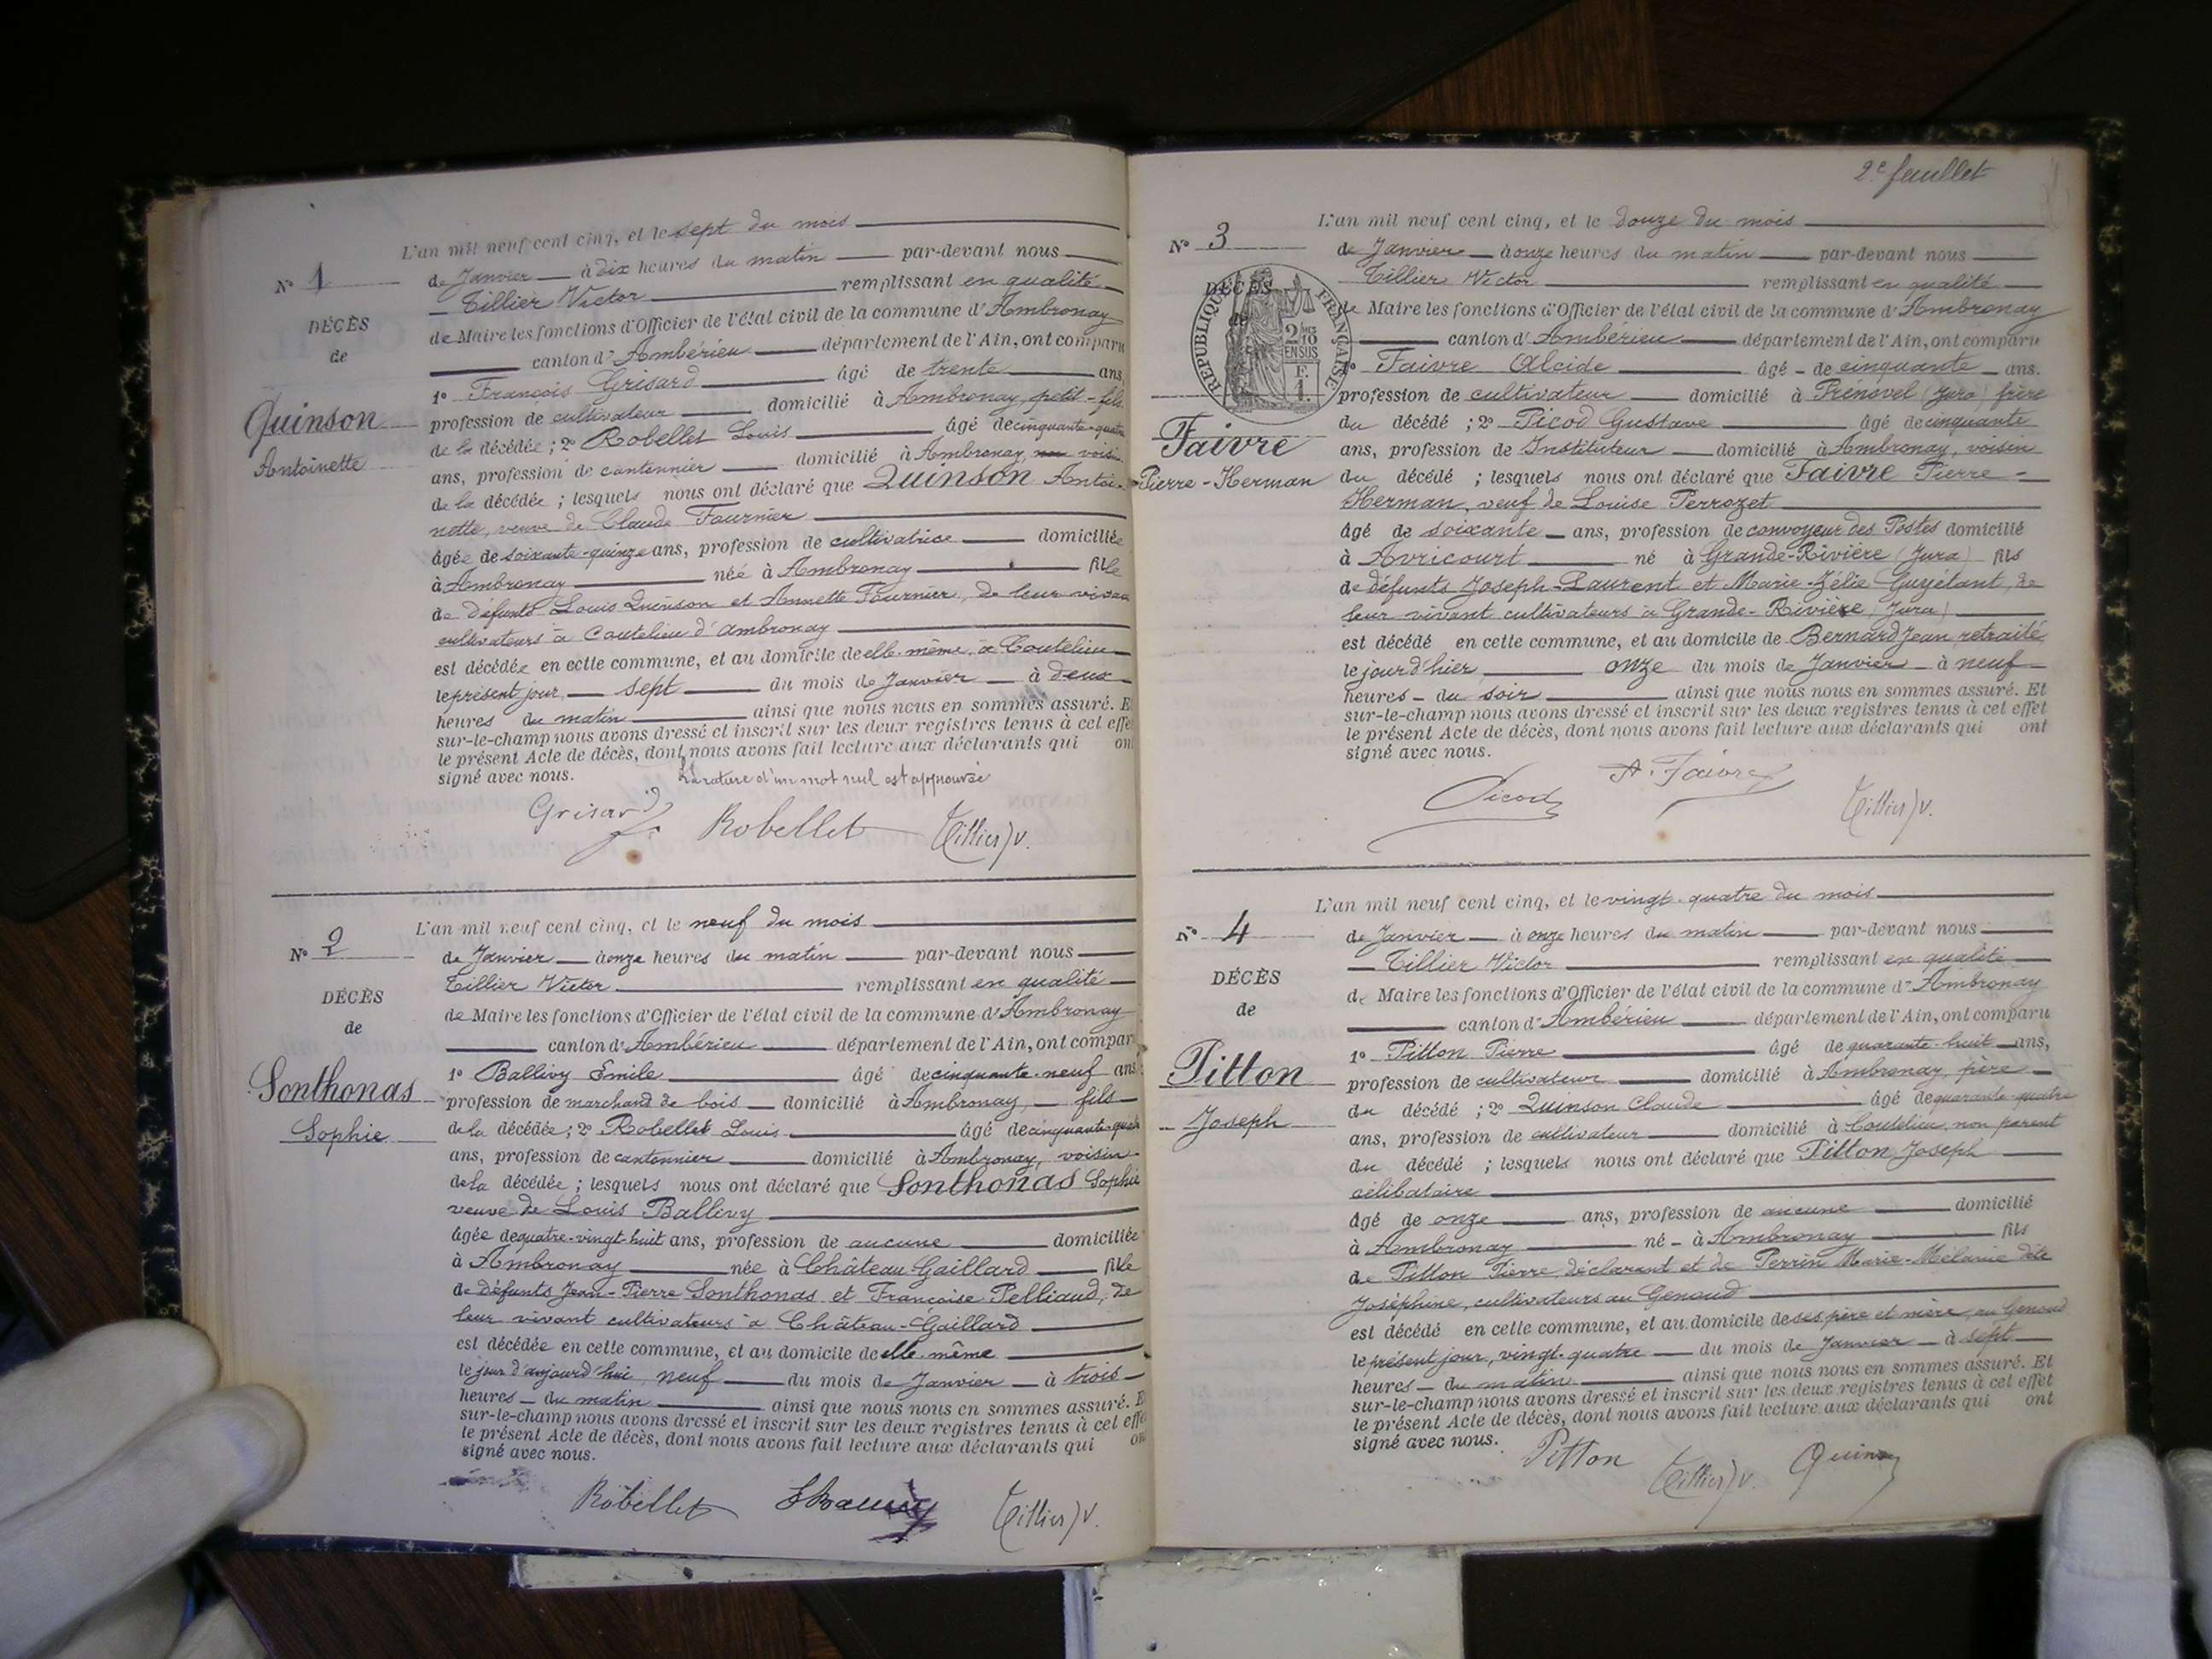 N° 1
DÉCÈS
de
Quinson
Antoinette
L'an mil neuf cent cinq, et le sept du mois
de Janvier à dix heures du matin par-devant nous
Tillier Victor remplissant en qualité
de Maire les fonctions d'Officier de l'état civil de la commune d'Ambronay
canton d'Ambérieu département de l'Ain, ont comparu
1° François Grisard âgé de trente ans,
profession de cultivateur domicilié à Ambronay, petit-fils
de la décédée ; 2° Robellet Louis âgé de cinquante-quatre
ans, profession de cantonnier domicilié à Ambronay, voisin
de la décédée ; lesquels nous ont déclaré que Quinson Antoi-
nette, veuve de Claude Fournier
âgée de soixante-quinze ans, profession de cultivatrice domiciliée
à Ambronay née à Ambronay fille
de défunts Louis Quinson et Annette Fournier, de leur vivant
cultivateurs à Coutelieu d'Ambronay
est décédée en cette commune, et au domicile de elle-même, à Coutelieu
le présent jour, sept du mois de Janvier à deux
heures du matin ainsi que nous nous en sommes assuré. Et
sur-le-champ nous avons dressé et inscrit sur les deux registres tenus à cet effet
le présent Acte de décès, dont nous avons fait lecture aux déclarants qui ont
signé avec nous. La rature d'un mot nul est approuvée
Grisard Robellet Tillier V.
N° 2
DÉCÈS
de
Sonthonas
Sophie
L'an mil neuf cent cinq, et le neuf du mois
de Janvier à onze heures du matin par-devant nous
Tillier Victor remplissant en qualité
de Maire les fonctions d'Officier de l'état civil de la commune d'Ambronay
canton d'Ambérieu département de l'Ain, ont comparu
1° Ballivy Emile âgé de cinquante-neuf ans
profession de marchand de bois domicilié à Ambronay, fils
de la décédée ; 2° Robellet Louis âgé de cinquante-quatre
ans, profession de cantonnier domicilié à Ambronay, voisin
de la décédée ; lesquels nous ont déclaré que Sonthonas Sophie
veuve de Louis Ballivy
âgée de quatre-vingt-huit ans, profession de aucune domiciliée
à Ambronay née à Château Gaillard fille
de défunts Jean-Pierre Sonthonas et Françoise Pelliaud, de
leur vivant cultivateurs à Château-Gaillard
est décédée en cette commune, et au domicile de elle-même
le jour d'aujourd'hui, neuf du mois de Janvier à trois
heures du matin ainsi que nous nous en sommes assuré. Et
sur-le-champ nous avons dressé et inscrit sur les deux registres tenus à cet effet
le présent Acte de décès, dont nous avons fait lecture aux déclarants qui ont
signé avec nous.
Robellet Tillier V.
2e feuillet
N° 3
DÉCÈS
de
RÉPUBLIQUE FRANÇAISE
2/10
EN SUS
F.
1.
Faivre
Pierre-Herman
L'an mil neuf cent cinq, et le douze du mois
de Janvier à onze heures du matin par-devant nous
Tillier Victor remplissant en qualité
de Maire les fonctions d'Officier de l'état civil de la commune d'Ambronay
canton d'Ambérieu département de l'Ain, ont comparu
1° Faivre Alcide âgé de cinquante ans.
profession de cultivateur domicilié à Prénovel (Jura) frère
du décédé ; 2° Picod Gustave âgé de cinquante
ans, profession de Instituteur domicilié à Ambronay, voisin
du décédé ; lesquels nous ont déclaré que Faivre Pierre-
Herman, veuf de Louise Perrozet
âgé de soixante ans, profession de convoyeur des Postes domicilié
à Avricourt né à Grande-Rivière (Jura) fils
de défunts Joseph-Laurent et Marie-Zélie Guyétant, de
leur vivant cultivateurs à Grande-Rivière (Jura)
est décédé en cette commune, et au domicile de Bernard Jean, retraité
le jour d'hier onze du mois de Janvier à neuf
heures du soir ainsi que nous nous en sommes assuré. Et
sur-le-champ nous avons dressé et inscrit sur les deux registres tenus à cet effet
le présent Acte de décès, dont nous avons fait lecture aux déclarants qui ont
signé avec nous.
Picod A. Faivre Tillier V.
N° 4
DÉCÈS
de
Pitton
Joseph
L'an mil neuf cent cinq, et le vingt-quatre du mois
de Janvier à onze heures du matin par-devant nous
Tillier Victor remplissant en qualité
de Maire les fonctions d'Officier de l'état civil de la commune d'Ambronay
canton d'Ambérieu département de l'Ain, ont comparu
1° Pitton Pierre âgé de quarante-huit ans,
profession de cultivateur domicilié à Ambronay, père
du décédé ; 2° Quinson Claude âgé de quarante-quatre
ans, profession de cultivateur domicilié à Coutelieu, non parent
du décédé ; lesquels nous ont déclaré que Pitton Joseph
célibataire
âgé de onze ans, profession de aucune domicilié
à Ambronay né à Ambronay fils
de Pitton Pierre, déclarant et de Perrin Marie-Mélanie dite
Joséphine, cultivateurs au Genoud
est décédé en cette commune, et au domicile de ses père et mère, au Genoud
le présent jour, vingt-quatre du mois de Janvier à sept
heures du matin ainsi que nous nous en sommes assuré. Et
sur-le-champ nous avons dressé et inscrit sur les deux registres tenus à cet effet
le présent Acte de décès, dont nous avons fait lecture aux déclarants qui ont
signé avec nous.
Pitton Tillier V. Quinson